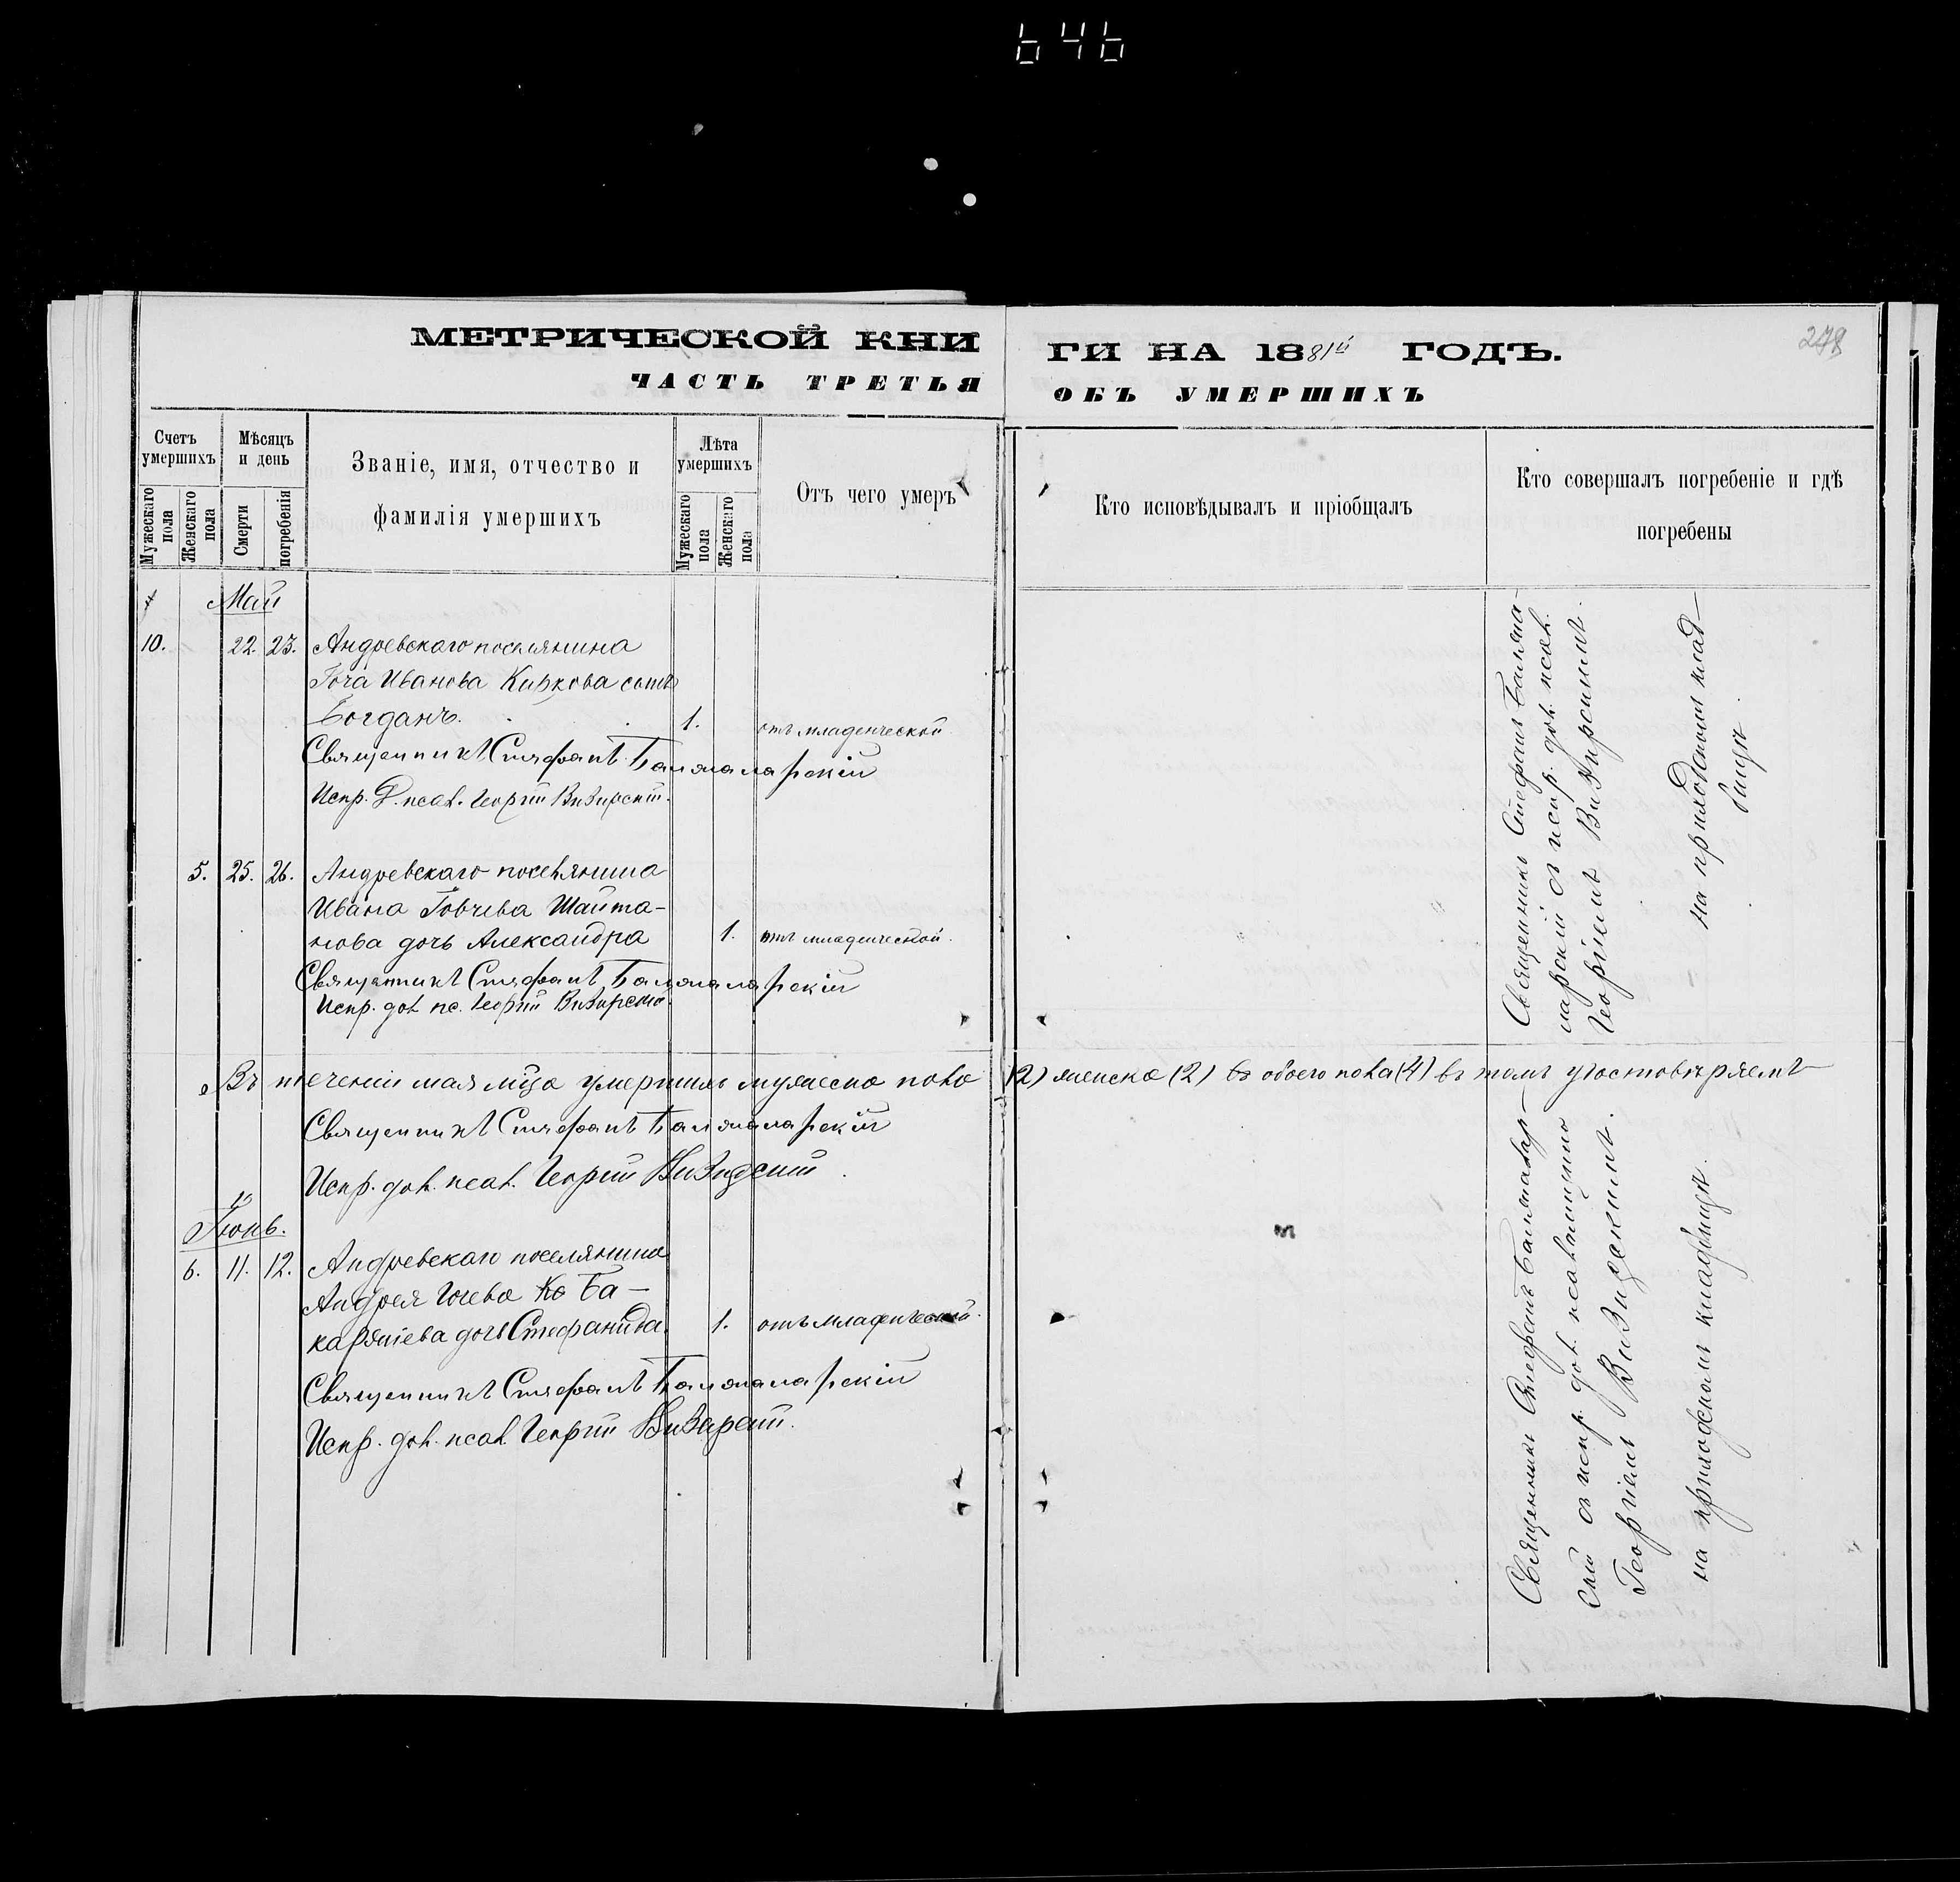 646
МЕТРИЧЕСКОЙ КНИ
ГИ НА 1881й ГОДЪ.
ЧАСТЬ ТРЕТЬЯ
ОБЪ УМЕРШИХЪ
Счетъ умершихъ
Мужескаго пола
Женскаго пола
Мѣсяцъ и день
Смерти
погребенія
Званіе, имя, отчество и
фамилія умершихъ
Лѣта умершихъ
Мужескаго пола
Женскаго пола
Отъ чего умеръ
Кто исповѣдывалъ и пріобщалъ
Кто совершалъ погребеніе и гдѣ
погребены
Май
10. 22. 23. Андреевскаго поселянина
Гоча Иванова Киркова сынъ
Богданъ. 1. отъ младенческой
Священникъ Стефанъ
Испр. Д. псал. Георгій
5. 25. 26. Андреевскаго поселянина
Ивана Говчева Шайта-
нова дочь Александра 1. отъ младенческой.
Священникъ Стефанъ
Испр. дол. пс. Георгій
Священникъ Стефанъ
с испр. дол. псал.
Георгіемъ
на приходскомъ клад-
бищѣ.
Въ теченіи мая мца умершихъ мужеска пола (2) женска (2) обоего пола (4) въ томъ удостовѣряемъ
Священникъ Стефанъ
Испр. дол. псал. Георгій
Іюнь.
6. 11. 12. Андреевскаго поселянина
Андрея Гочева Ко Ба-
каржіева дочь Стефанида. 1. отъ младенческой.
Священникъ Стефанъ
Испр. дол. псал. Георгій
Священникъ Стефанъ
скій с испр. дол. псаломщика
Георгіемъ
на приходскомъ кладбищѣ.